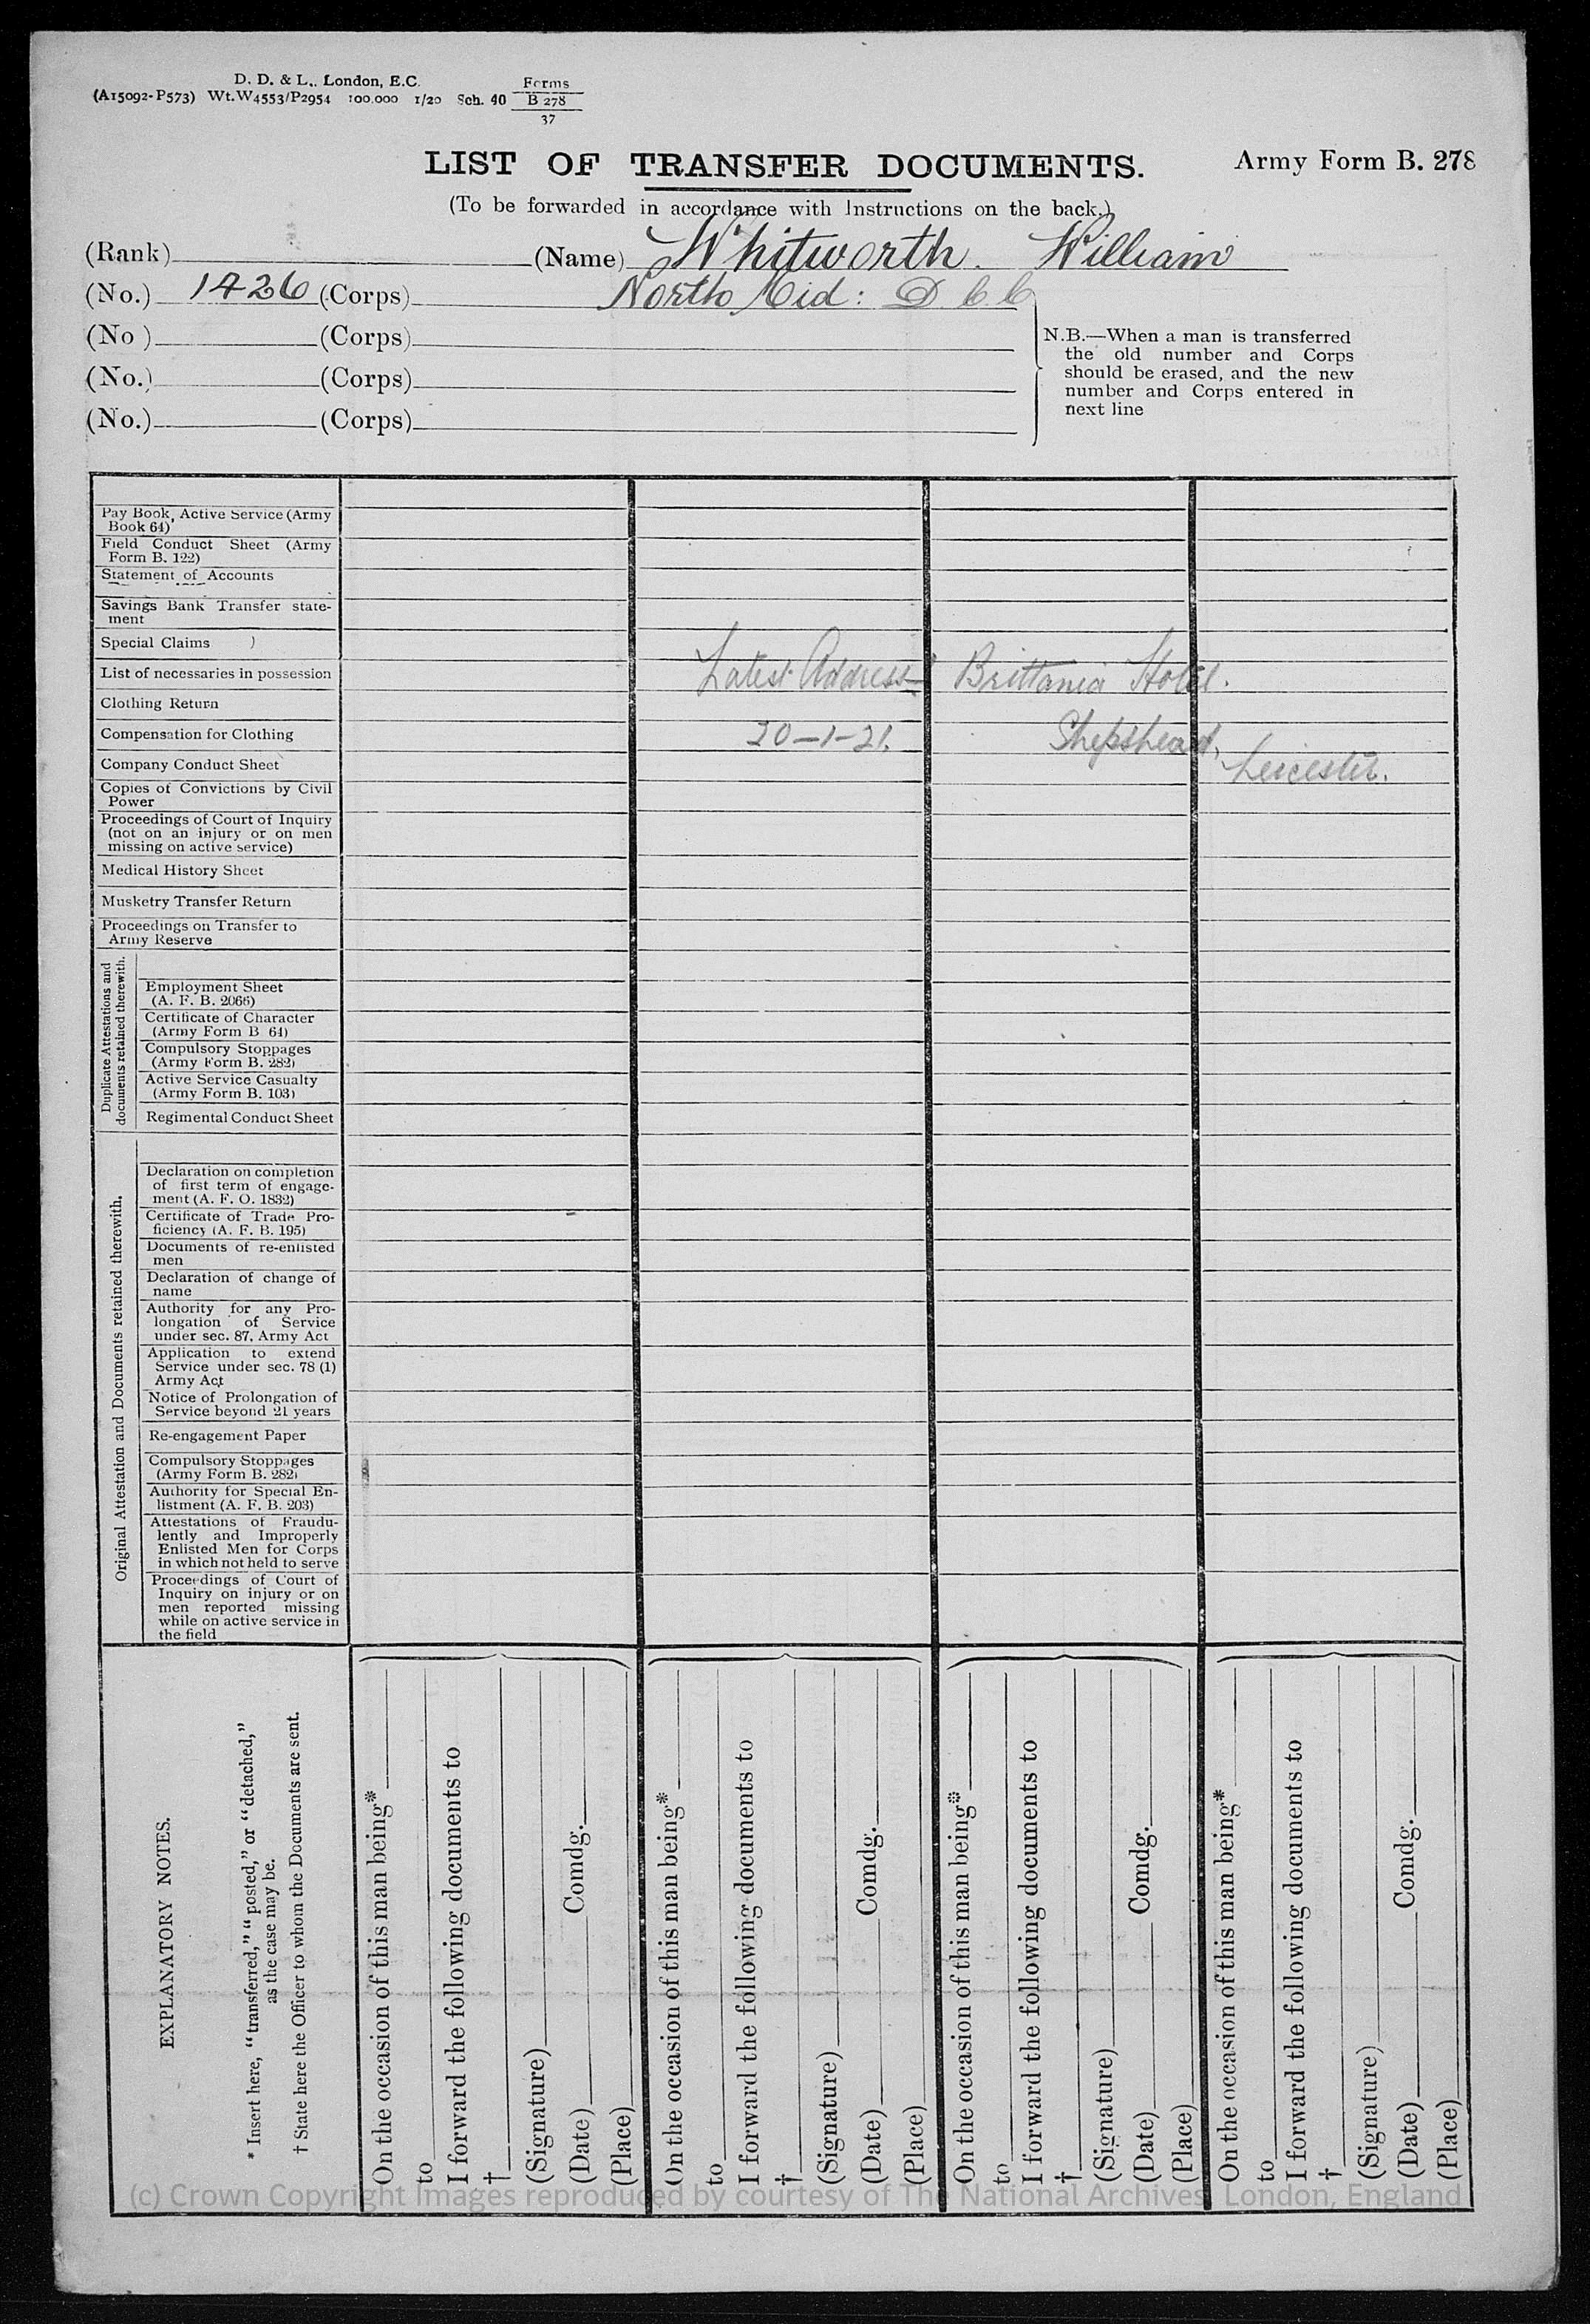 D. D. & L., London, E.C.
(A15092-P573) Wt.W4553/P2954 100,000 1/20 Sch. 40 Forms
B 278
37
LIST OF TRANSFER DOCUMENTS.
Army Form B. 278
(To be forwarded in accordance with Instructions on the back.)
(Rank) (Name) Whitworth. William
(No.) 1426 (Corps) North Mid: D.C.C
(No ) (Corps)
(No.) (Corps)
(No.) (Corps)
N.B.—When a man is transferred
the old number and Corps
should be erased, and the new
number and Corps entered in
next line
Pay Book, Active Service (Army
Book 64)
Field Conduct Sheet (Army
Form B. 122)
Statement of Accounts
Savings Bank Transfer state-
ment
Special Claims )
List of necessaries in possession
Latest Address Brittania Hotel.
Clothing Return
Compensation for Clothing
20-1-21. Shepshead,
Company Conduct Sheet
Leicester.
Copies of Convictions by Civil
Power
Proceedings of Court of Inquiry
(not on an injury or on men
missing on active service)
Medical History Sheet
Musketry Transfer Return
Proceedings on Transfer to
Army Reserve
Duplicate Attestations and
documents retained therewith.
Employment Sheet
(A. F. B. 2066)
Certificate of Character
(Army Form B 64)
Compulsory Stoppages
(Army Form B. 282)
Active Service Casualty
(Army Form B. 103)
Regimental Conduct Sheet
Original Attestation and Documents retained therewith.
Declaration on completion
of first term of engage-
ment (A. F. O. 1832)
Certificate of Trade Pro-
ficiency (A. F. B. 195)
Documents of re-enlisted
men
Declaration of change of
name
Authority for any Pro-
longation of Service
under sec. 87, Army Act
Application to extend
Service under sec. 78 (1)
Army Act
Notice of Prolongation of
Service beyond 21 years
Re-engagement Paper
Compulsory Stoppages
(Army Form B. 282)
Authority for Special En-
listment (A. F. B. 203)
Attestations of Fraudu-
lently and Improperly
Enlisted Men for Corps
in which not held to serve
Proceedings of Court of
Inquiry on injury or on
men reported missing
while on active service in
the field
EXPLANATORY NOTES.
* Insert here, "transferred," "posted," or "detached,"
as the case may be.
† State here the Officer to whom the Documents are sent.
On the occasion of this man being*
to
I forward the following documents to
†
(Signature)
(Date) Comdg.
(Place)
On the occasion of this man being*
to
I forward the following documents to
†
(Signature)
(Date) Comdg.
(Place)
On the occasion of this man being*
to
I forward the following documents to
†
(Signature)
(Date) Comdg.
(Place)
On the occasion of this man being*
to
I forward the following documents to
†
(Signature)
(Date) Comdg.
(Place)
(c) Crown Copyright Images reproduced by courtesy of The National Archives, London, England